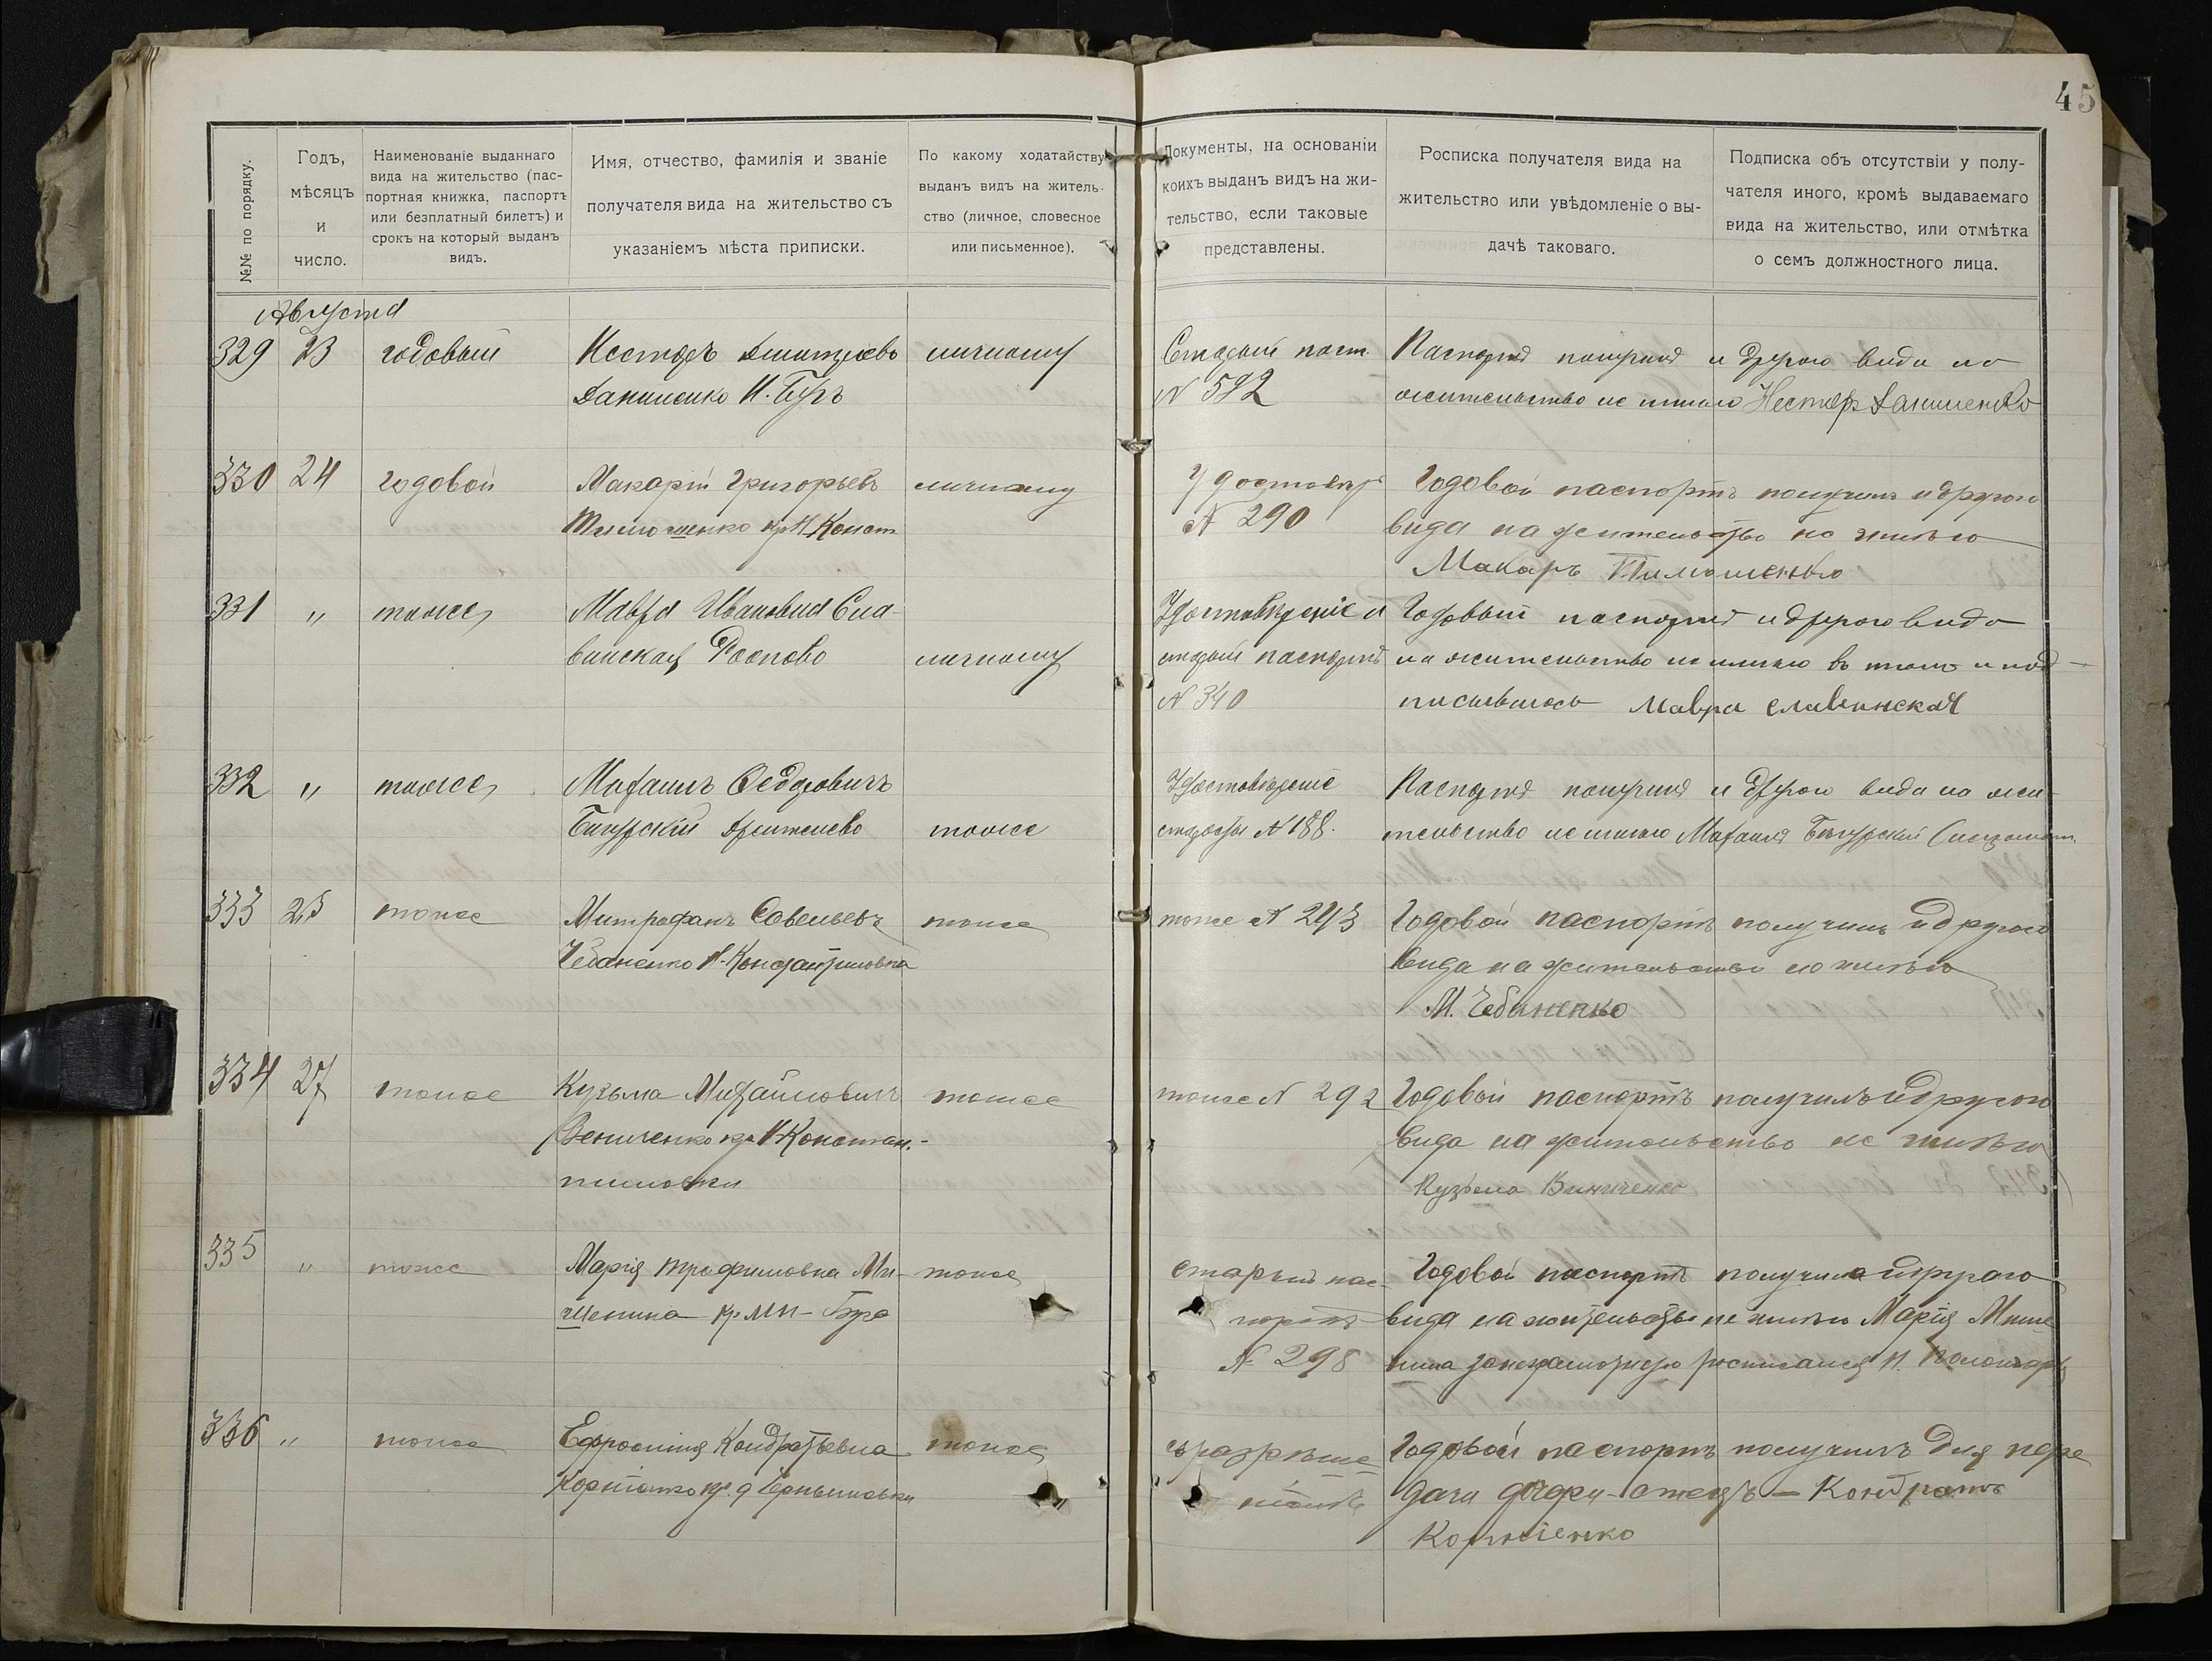 45
№№ по порядку.
Годъ,
мѣсяцъ
и
число.
Наименованіе выданнаго
вида на жительство (пас-
портная книжка, паспортъ
или безплатный билетъ) и
срокъ на который выданъ
видъ.
Имя, отчество, фамилія и званіе
получателя вида на жительство съ
указаніемъ мѣста приписки.
По какому ходатайству
выданъ видъ на житель-
ство (личное, словесное
или письменное).
Документы, на основаніи
коихъ выданъ видъ на жи-
тельство, если таковые
представлены.
Росписка получателя вида на
жительство или увѣдомленіе о вы-
дачѣ таковаго.
Подписка объ отсутствіи у полу-
чателя иного, кромѣ выдаваемаго
вида на жительство, или отмѣтка
о семъ должностного лица.
Августа
329 23 годовый Несторъ Дмитріевъ личному
Данименко
Старый пасп.
N 592
Паспортъ получилъ и другого вида на
жительство не имѣю Несторъ
330 24 годовой Макарій Григорьевъ личному
Тимошенко кр. Н Конст
N 290
Годовой паспортъ получилъ и другого
вида на жительство не имѣю
Макаръ Тимошенко
331 " тоже Мавра Ивановна Сла-
винская личному
Удостовѣреніе и
старый паспортъ
N 340
Годовый паспортъ и другого вида
на жительство не имѣю въ томъ и под-
писываюсь Мавра Славинская
332 " тоже Михаилъ Ѳедоровичъ
тоже
Удостовѣреніе
старосты N 188.
Паспортъ получилъ и другого вида на жи-
тельство не имѣю Михаилъ
333 25 тоже Митрофанъ Савельевъ тоже
Чебаненко Н-Константиновка
тоже N 293
Годовой паспортъ получилъ и другого
вида на жительство не имѣю
М. Чебаненко
334 27 тоже Кузьма Михайловичъ тоже
кр Н Констан-
тиновки
тоже N 292
Годовой паспортъ получилъ и другого
вида на жительство не имѣю
Кузьма Виниченко
335 " тоже Марія Трофимовна Ми- тоже
шенина кр.
старый пас-
портъ
N 298
Годовой паспортъ получила и другого
вида на жительство не имѣю Марія Мише
нина за неграмотную росписался
336 " тоже Ефросинія Кондратьевна тоже
Корніенко кр. д
Годовой паспортъ получилъ для пере
дачи дочери - отецъ - Кондратъ
Корніенко